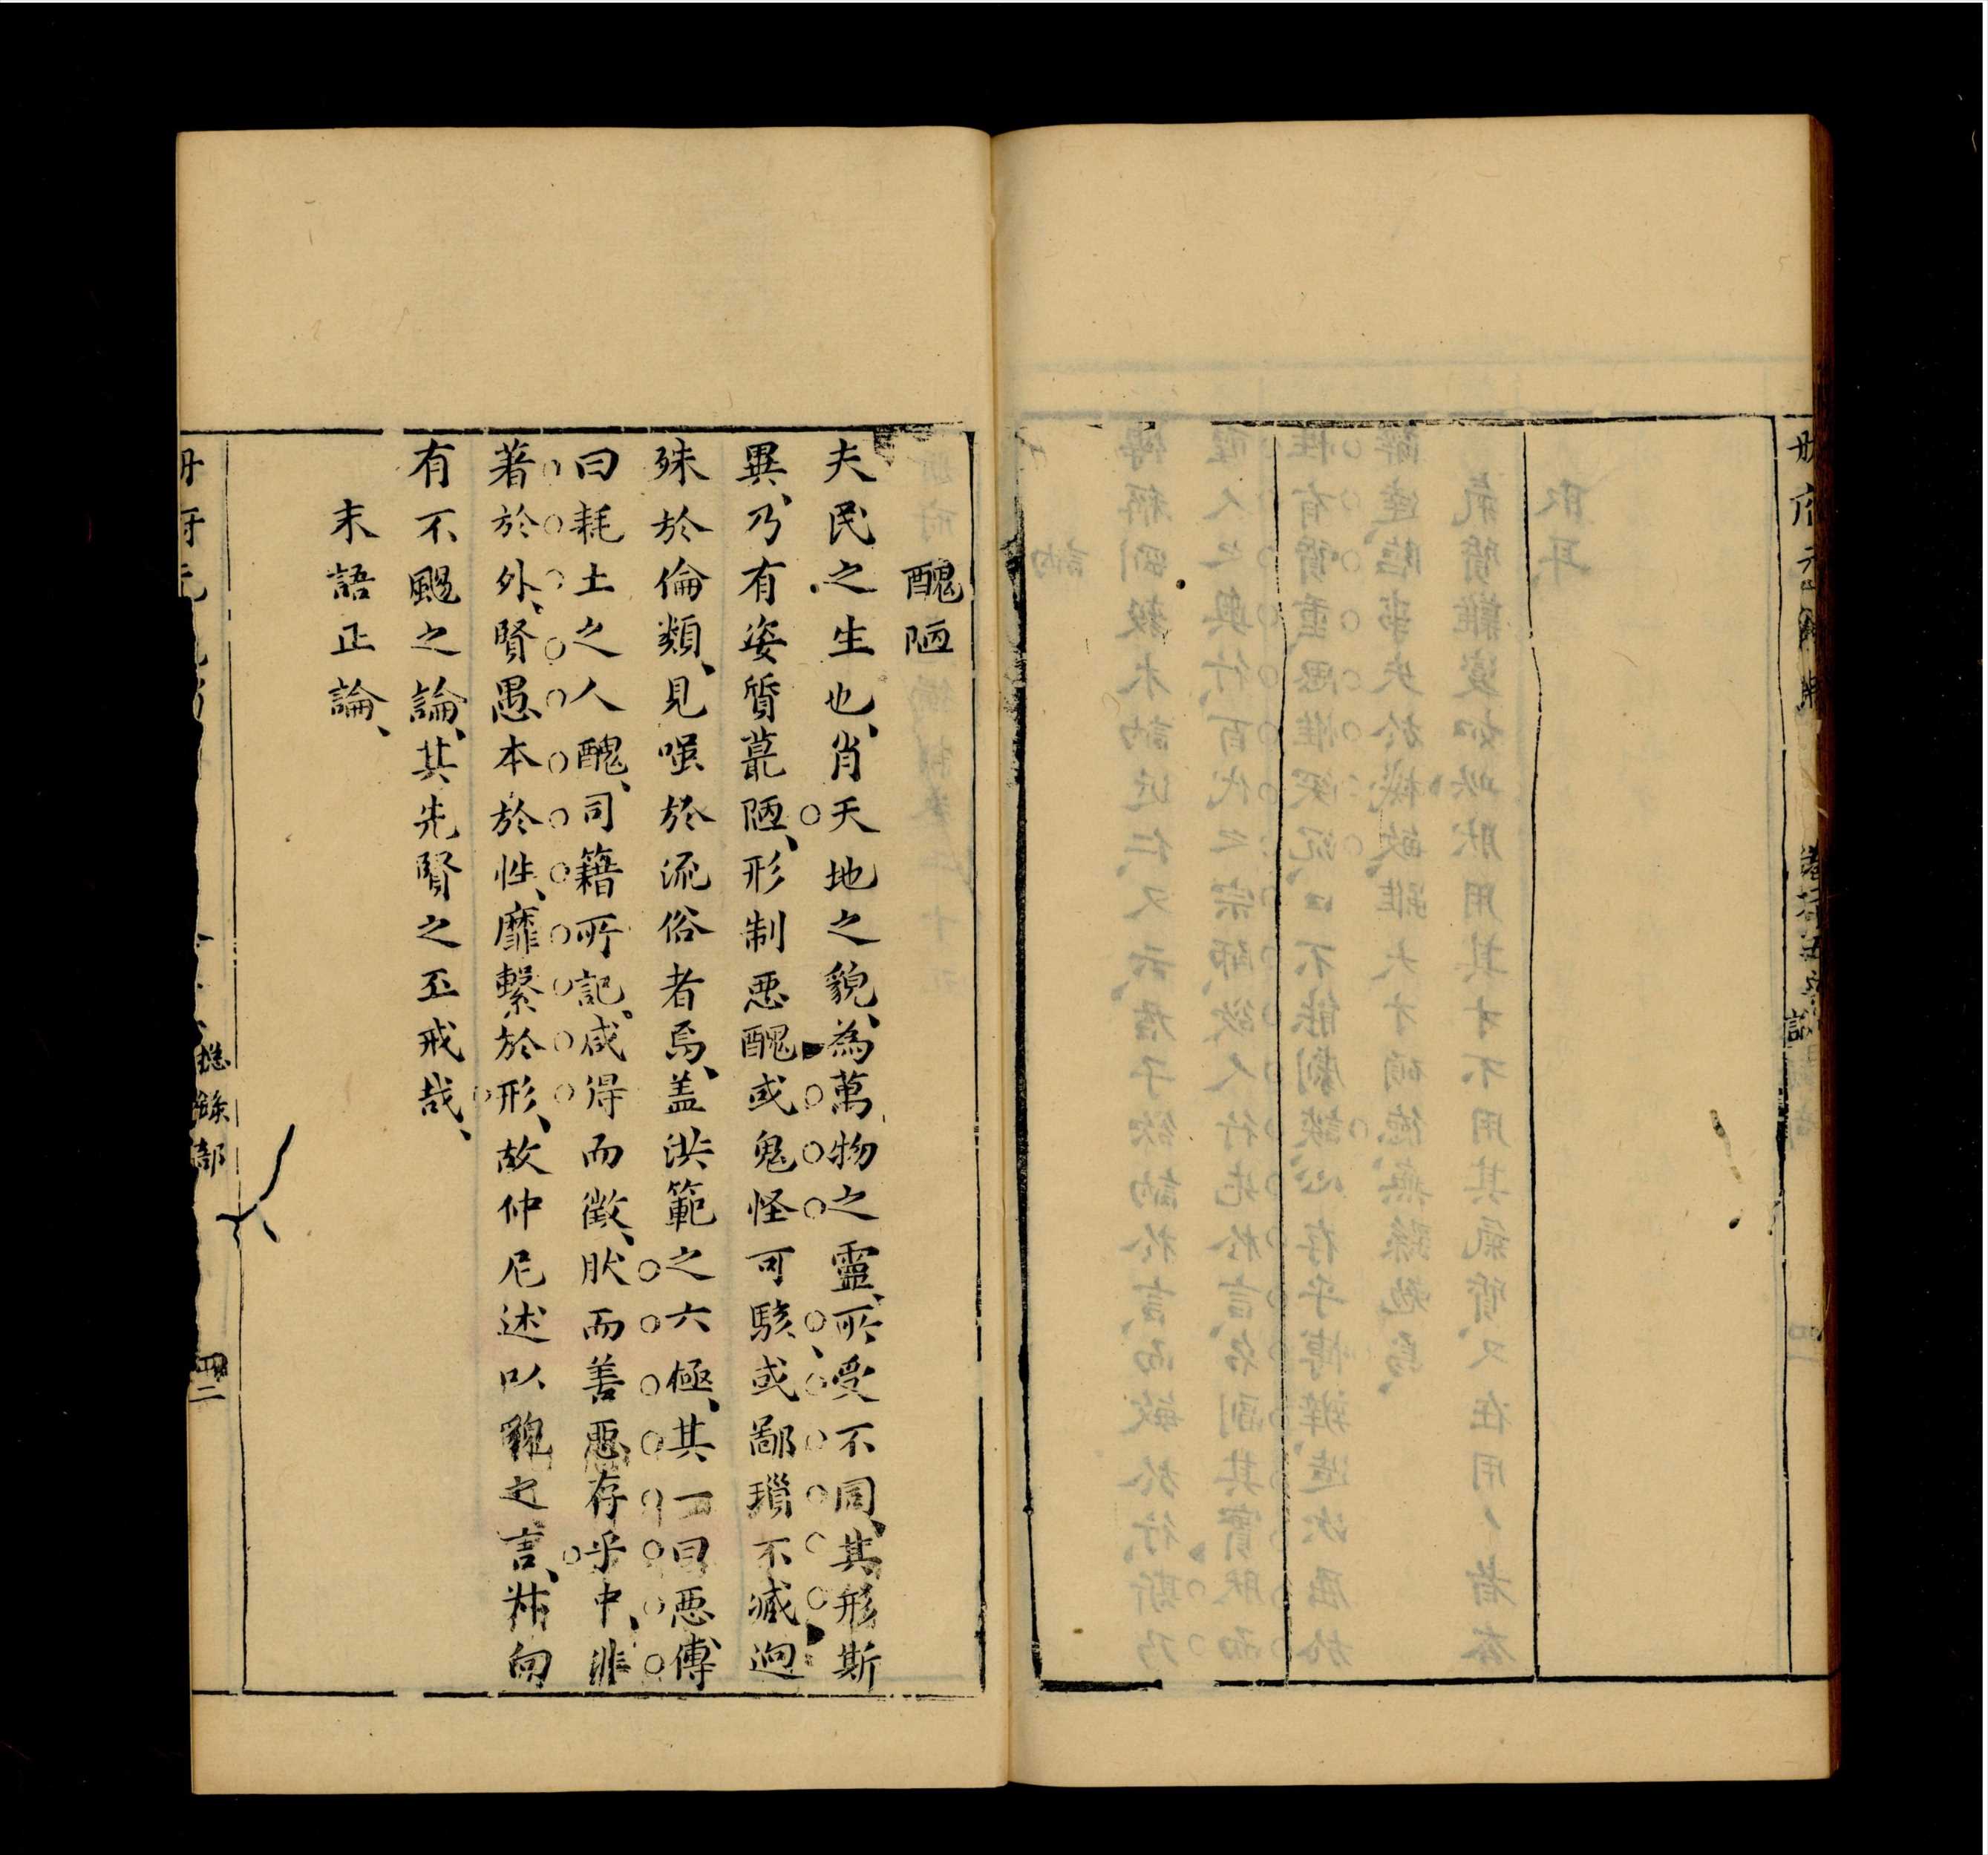 醜陋
夫民之生也、肖天地之貌、為萬物之靈、所受不同、其形斯
異、乃有姿質蕞陋、形制惡醜或鬼怪可駭、或鄙瑣不臧迥
殊於倫類、見嗤於流俗者焉、盖洪範之六極、其一曰惡傳
曰耗土之人醜、司籍所記、咸得而徵、肰而善惡存乎中、非
著於外、賢愚本於性、靡繫於形、故仲尼述以貌之言、叔向
有不颺之論、其先賢之丕戒哉、
末語正論、
總錄部